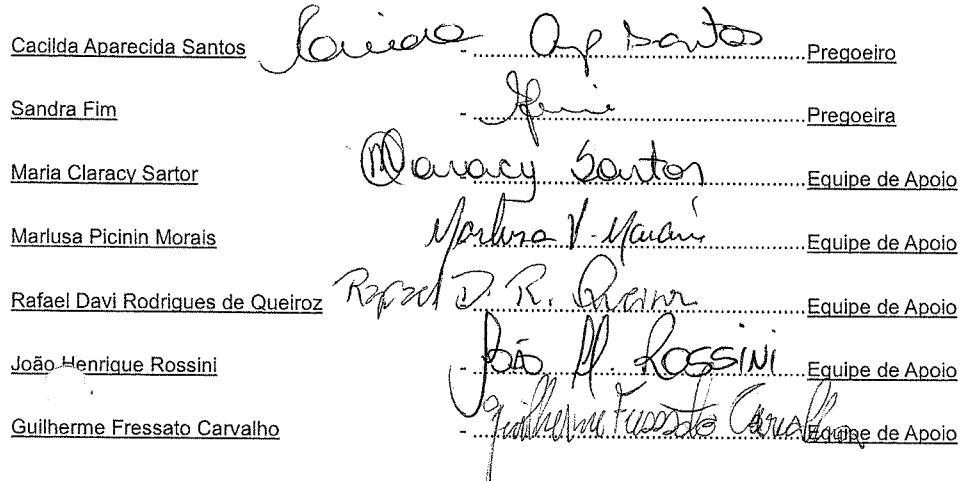 Cacilda Aparecida Santos - Ap Santos Pregoeiro
Sandra Fim - Pregoeira
Maria Claracy Sartor - Claracy Sartor Equipe de Apoio
Marlusa Picinin Morais Marlusa Equipe de Apoio
Rafael Davi Rodrigues de Queiroz Rafael D. R. Queiroz Equipe de Apoio
João Henrique Rossini - João H. Rossini Equipe de Apoio
Guilherme Fressato Carvalho - Guilherme Fressato Carvalho Equipe de Apoio